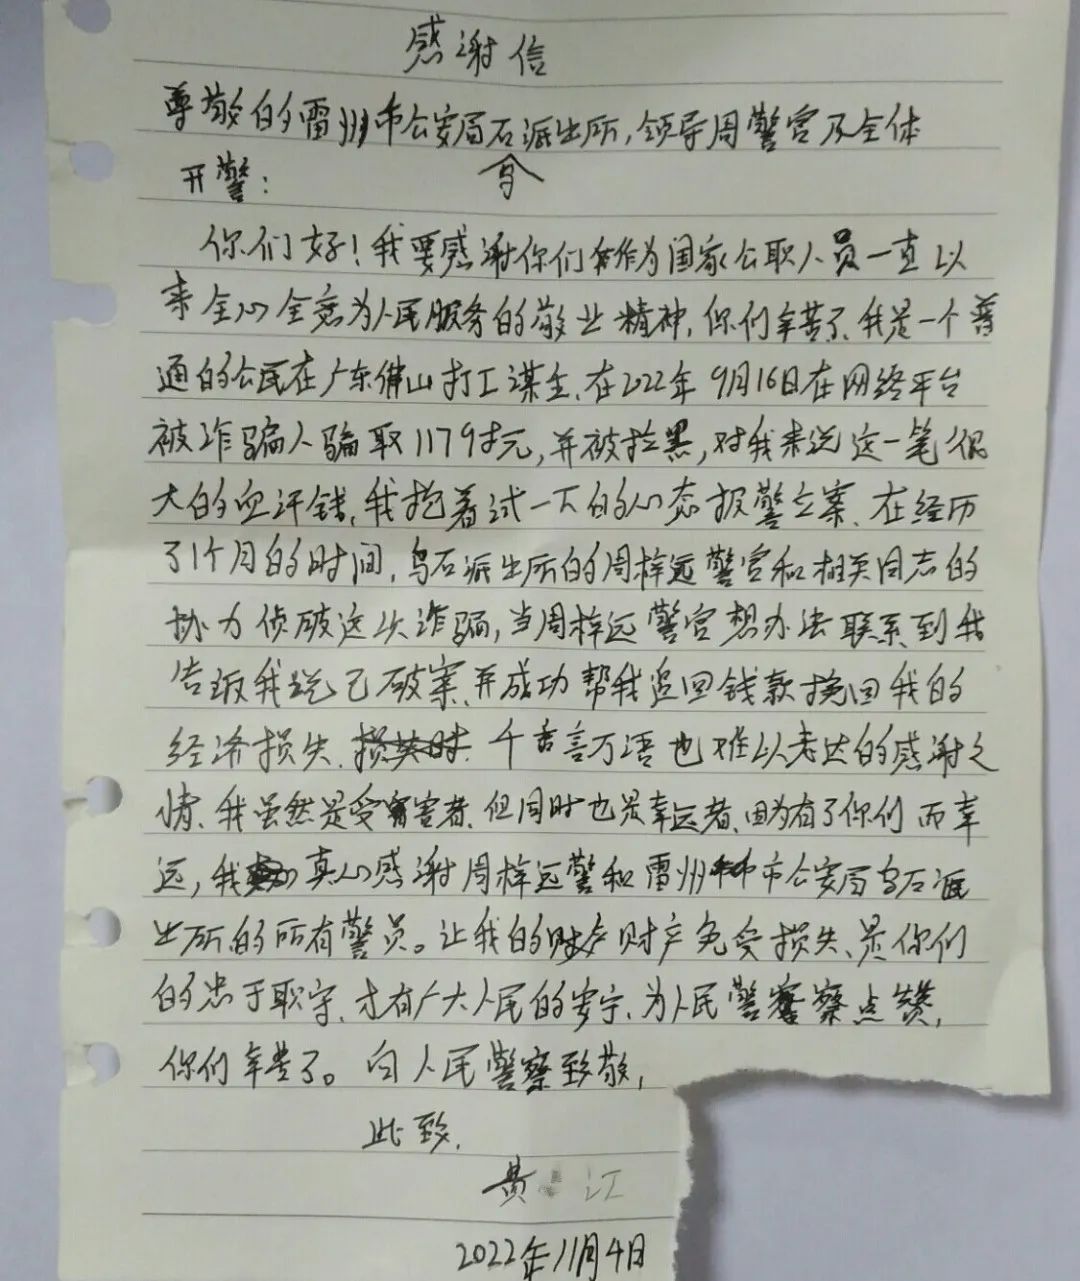 感谢信
尊敬的雷州市公安局乌石派出所,领导周警官及全体
干警:
你们好!我要感谢你们作为国家公职人员一直以
来全心全意为人民服务的敬业精神,你们辛苦了、我是一个普
通的公民在广东佛山打工谋生、在2022年9月16日在网络平台
被诈骗人骗取1179元,并被拉黑,对我来说这一笔很
大的血汗钱,我抱着试一下的心态报警立案、在经历
了1个月的时间,乌石派出所的周梓远警官和相关同志的
协力侦破这次诈骗,当周梓远警官想办法联系到我
告诉我说已破案、并成功帮我追回钱款挽回我的
经济损失、千言万语也难以表达的感谢之
情、我虽然是受害者、但同时也是幸运者、因为有了你们而幸
运,我真心感谢周梓远警和雷州市公安局乌石派
出所的所有警员。让我的财产免受损失、是你们
的忠于职守、才有广大人民的安宁、为人民警察点赞,
你们辛苦了。向人民警察致敬,
此致,
黄 江
2022年11月4日